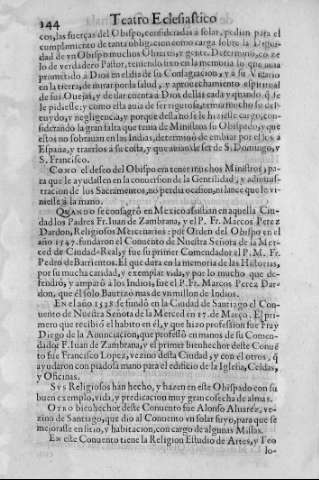 144 Teatro Eclesiastico
cos, las fuerças del Obispo, consideradas a solas, pedian para el
cumplimiento de tanta obligacion como carga sobre la Digni-
dad de vn Obispo muchos Obreros, y gente. Determinó, co ze-
lo de verdadero Pastor, teniendo uno en la memoria lo que avia
prometido à Dios en el dia de su Consagracion, y à su Vicario
en la tierra, de mirar por la salud, y aprovechamiento espiritual
de sus Ovejas, y de dar cuenta à Dios dellas cada y quando q̃ se
le pidiesse; y como esta avia de ser rigurosa, temia mucho su des-
cuydo, y negligencia, y porque desta no se le hiziesse cargo, con-
siderando la gran falta que tenia de Ministros su Obispado, y que
estos no sobravan en las Indias, determinò de embiar por ellos à
España, y traerlos à su costa, y que avian de ser de S. Domingo, y
S. Francisco.
COMO el deseo del Obispo era tener muchos Ministros, pa-
ra que le ayudassen en la conversion de la Gentilidad, y adminis-
tracion de los Sacramentos, no perdia ocasion, ni lance que le vi-
niesse à la mano.
QUANDO se consagrò en Mexico assistian en aquella Ciu-
dad los Padres Fr. Iuan de Zambrana, y el P. Fr. Marcos Perez
Dardon, Religiosos Mercenarios: por Orden del Obispo en el
año 1537. fundaron el Convento de Nuestra Señora de la Mer-
ced de Ciudad-Real, y fue su primer Comendador el P. M. Fr.
Pedro de Barrientos. El que dura en la memoria de las Historias,
por su mucha caridad, y exemplar vida, y por lo mucho que de-
fendió, y amparò à los Indios, fue el P. Fr. Marcos Perez Dar-
don, que él solo Bautizò mas de vn millon de Indios.
En el año 1538. se fundò en la Ciudad de Santiago el Con-
vento de Nuestra Señora de la Merced en 17. de Março. El pri-
mero que recibiò el habito en èl, y que hizo profession fue Fray
Diego de la Anunciacion, que professò en manos de su Comen-
dador F. Iuan de Zambrana, y el primer bienhechor deste Convẽ
to fue Francisco Lopez, vezino desta Ciudad, y con el otros, q̃
ayudaron con piadosa mano para el edificio de la Iglesia, Celdas,
y Oficinas.
SUS Religiosos han hecho, y hazen en este Obispado con su
buen exemplo, vida, y predicacion muy gran cosecha de almas.
OTRO bienhechor deste Convento fue Alonso Aluarez, ve-
zino de Santiago, que dio al Convento vn solar suyo, para que se
mejorasse en sitio, y habitacion, con cargo de algunas Missas.
EN este Convento tiene la Religion Estudio de Artes, y Teo
lo-